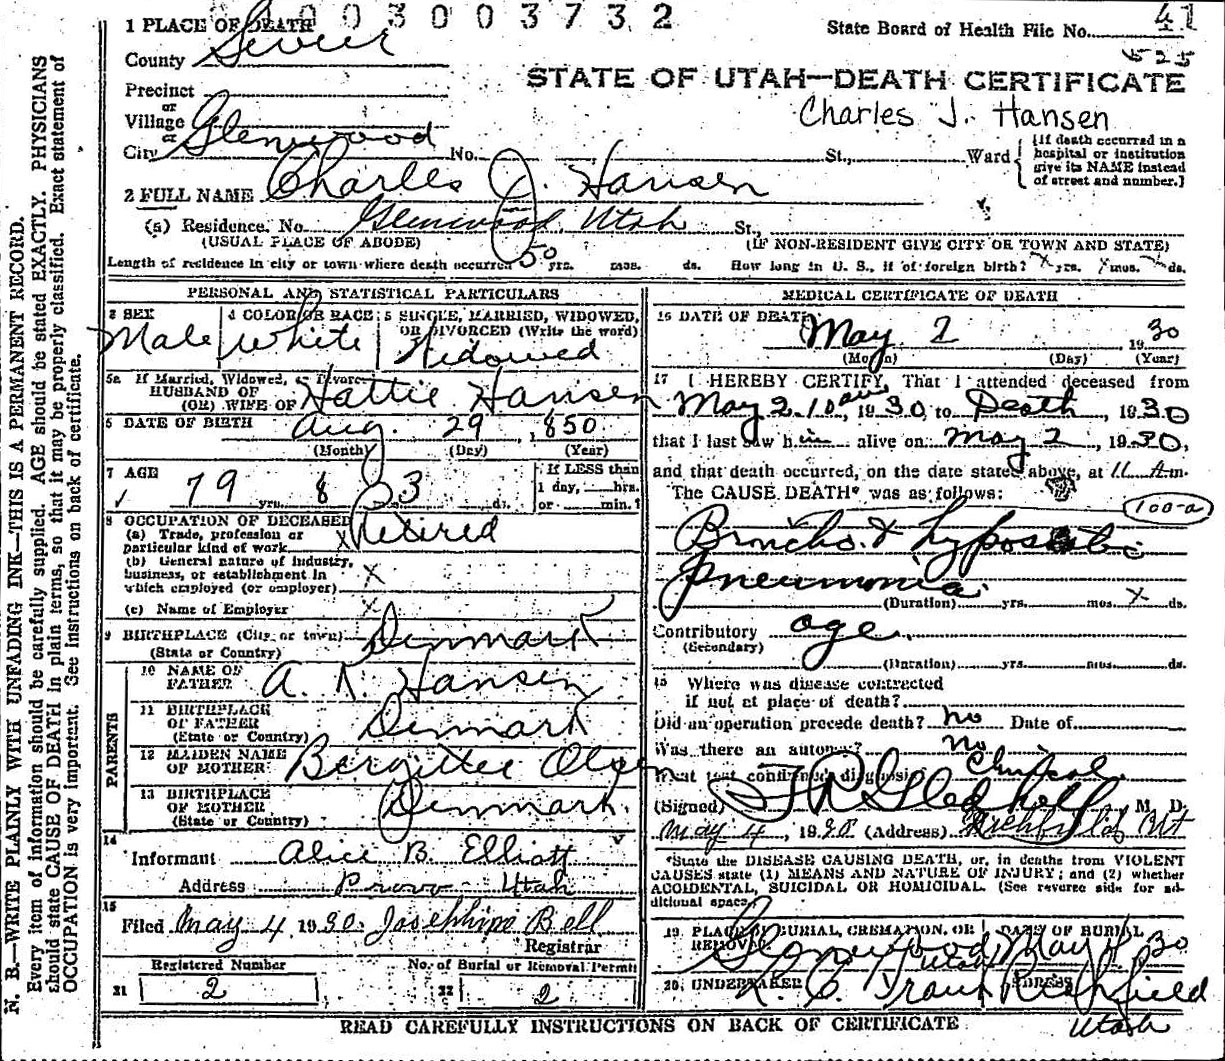 003003732
1 PLACE OF DEATH
State Board of Health File No. 41
County Sevier
525
STATE OF UTAH—DEATH CERTIFICATE
Precinct
or
Village
Charles J. Hansen
or
City Glenwood No. St., Ward
{If death occurred in a
hospital or institution
give its NAME instead
of street and number.]
2 FULL NAME Charles J. Hansen
(a) Residence. No. Glenwood, Utah St.,
(USUAL PLACE OF ABODE) (IF NON-RESIDENT GIVE CITY OR TOWN AND STATE)
Length of residence in city or town where death occurred 50 yrs. mos. ds. How long in U. S., if of foreign birth? x yrs. mos. ds.
PERSONAL AND STATISTICAL PARTICULARS
3 SEX Male
4 COLOR OR RACE White
5 SINGLE, MARRIED, WIDOWED,
OR DIVORCED (Write the word)
Widowed
5a If Married, Widowed, or Divorced
HUSBAND OF
(OR) WIFE OF Hattie Hansen
6 DATE OF BIRTH Aug. 29, 1850
(Month) (Day) (Year)
7 AGE
79 yrs. 8 3 ds.
If LESS than
1 day, hrs.
or min.
8 OCCUPATION OF DECEASED
(a) Trade, profession or
particular kind of work x Retired
(b) General nature of industry,
business, or establishment in
which employed (or employer) x
(c) Name of Employer x
9 BIRTHPLACE (City or town) Denmark
(State or Country)
PARENTS
10 NAME OF
FATHER A. K. Hansen
11 BIRTHPLACE
OF FATHER Denmark
(State or Country)
12 MAIDEN NAME
OF MOTHER Bergittee Olsen
13 BIRTHPLACE
OF MOTHER Denmark.
(State or Country)
14
Informant Alice B. Elliott
Address Provo Utah
15
Filed May 4 1930. Josephine Bell
Registrar
Registered Number
21 2
No. of Burial or Removal Permit
22 2
MEDICAL CERTIFICATE OF DEATH
16 DATE OF DEATH
May 2, 1930
(Month) (Day) (Year)
17 I HEREBY CERTIFY, That I attended deceased from
May 2. 10 am, 1930 to Death, 1930
that I last saw him alive on May 2, 1930,
and that death occurred, on the date stated above, at 11 Am.
The CAUSE DEATH* was as follows:
100-a
Broncho. & hypostatic
pneumonia
(Duration) yrs. mos. x ds.
Contributory age.
(Secondary)
(Duration) yrs. mos. ds.
18 Where was disease contracted
if not at place of death?
Did an operation precede death? no Date of
Was there an autopsy? no
What test confirmed diagnosis? Clinical
(Signed) T R Gledhill, M. D.
May 4, 1930 (Address) Richfield Ut
*State the DISEASE CAUSING DEATH, or, in deaths from VIOLENT
CAUSES state (1) MEANS AND NATURE OF INJURY; and (2) whether
ACCIDENTAL, SUICIDAL OR HOMICIDAL. (See reverse side for ad-
ditional space.)
19 PLACE OF BURIAL, CREMATION, OR
REMOVAL
Glenwood, Utah
DATE OF BURIAL
May 4, 30
20. UNDERTAKER
ADDRESS
Richfield
Utah
READ CAREFULLY INSTRUCTIONS ON BACK OF CERTIFICATE
N. B.—WRITE PLAINLY WITH UNFADING INK—THIS IS A PERMANENT RECORD.
Every item of information should be carefully supplied. AGE should be stated EXACTLY. PHYSICIANS
should state CAUSE OF DEATH in plain terms, so that it may be properly classified. Exact statement of
OCCUPATION is very important. See instructions on back of certificate.